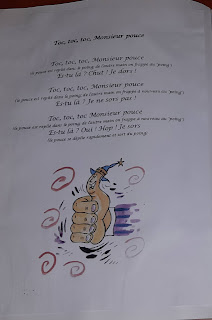 Toc, toc, toc, Monsieur pouce
Toc, toc, toc, Monsieur pouce
(le pouce est replié dans le poing, de l'autre main on frappe au "poing")
Es-tu là ? Chut ! Je dors !
Toc, toc, toc, Monsieur pouce
(le pouce est replié dans le poing, de l'autre main on frappe à nouveau au "poing")
Es-tu là ? Je ne sors pas !
Toc, toc, toc, Monsieur pouce
(le pouce est replié dans le poing, de l'autre main on frappe à nouveau au "poing")
Es-tu là ? Oui ! Hop ! Je sors
(le pouce se déplie rapidement et sort du poing)